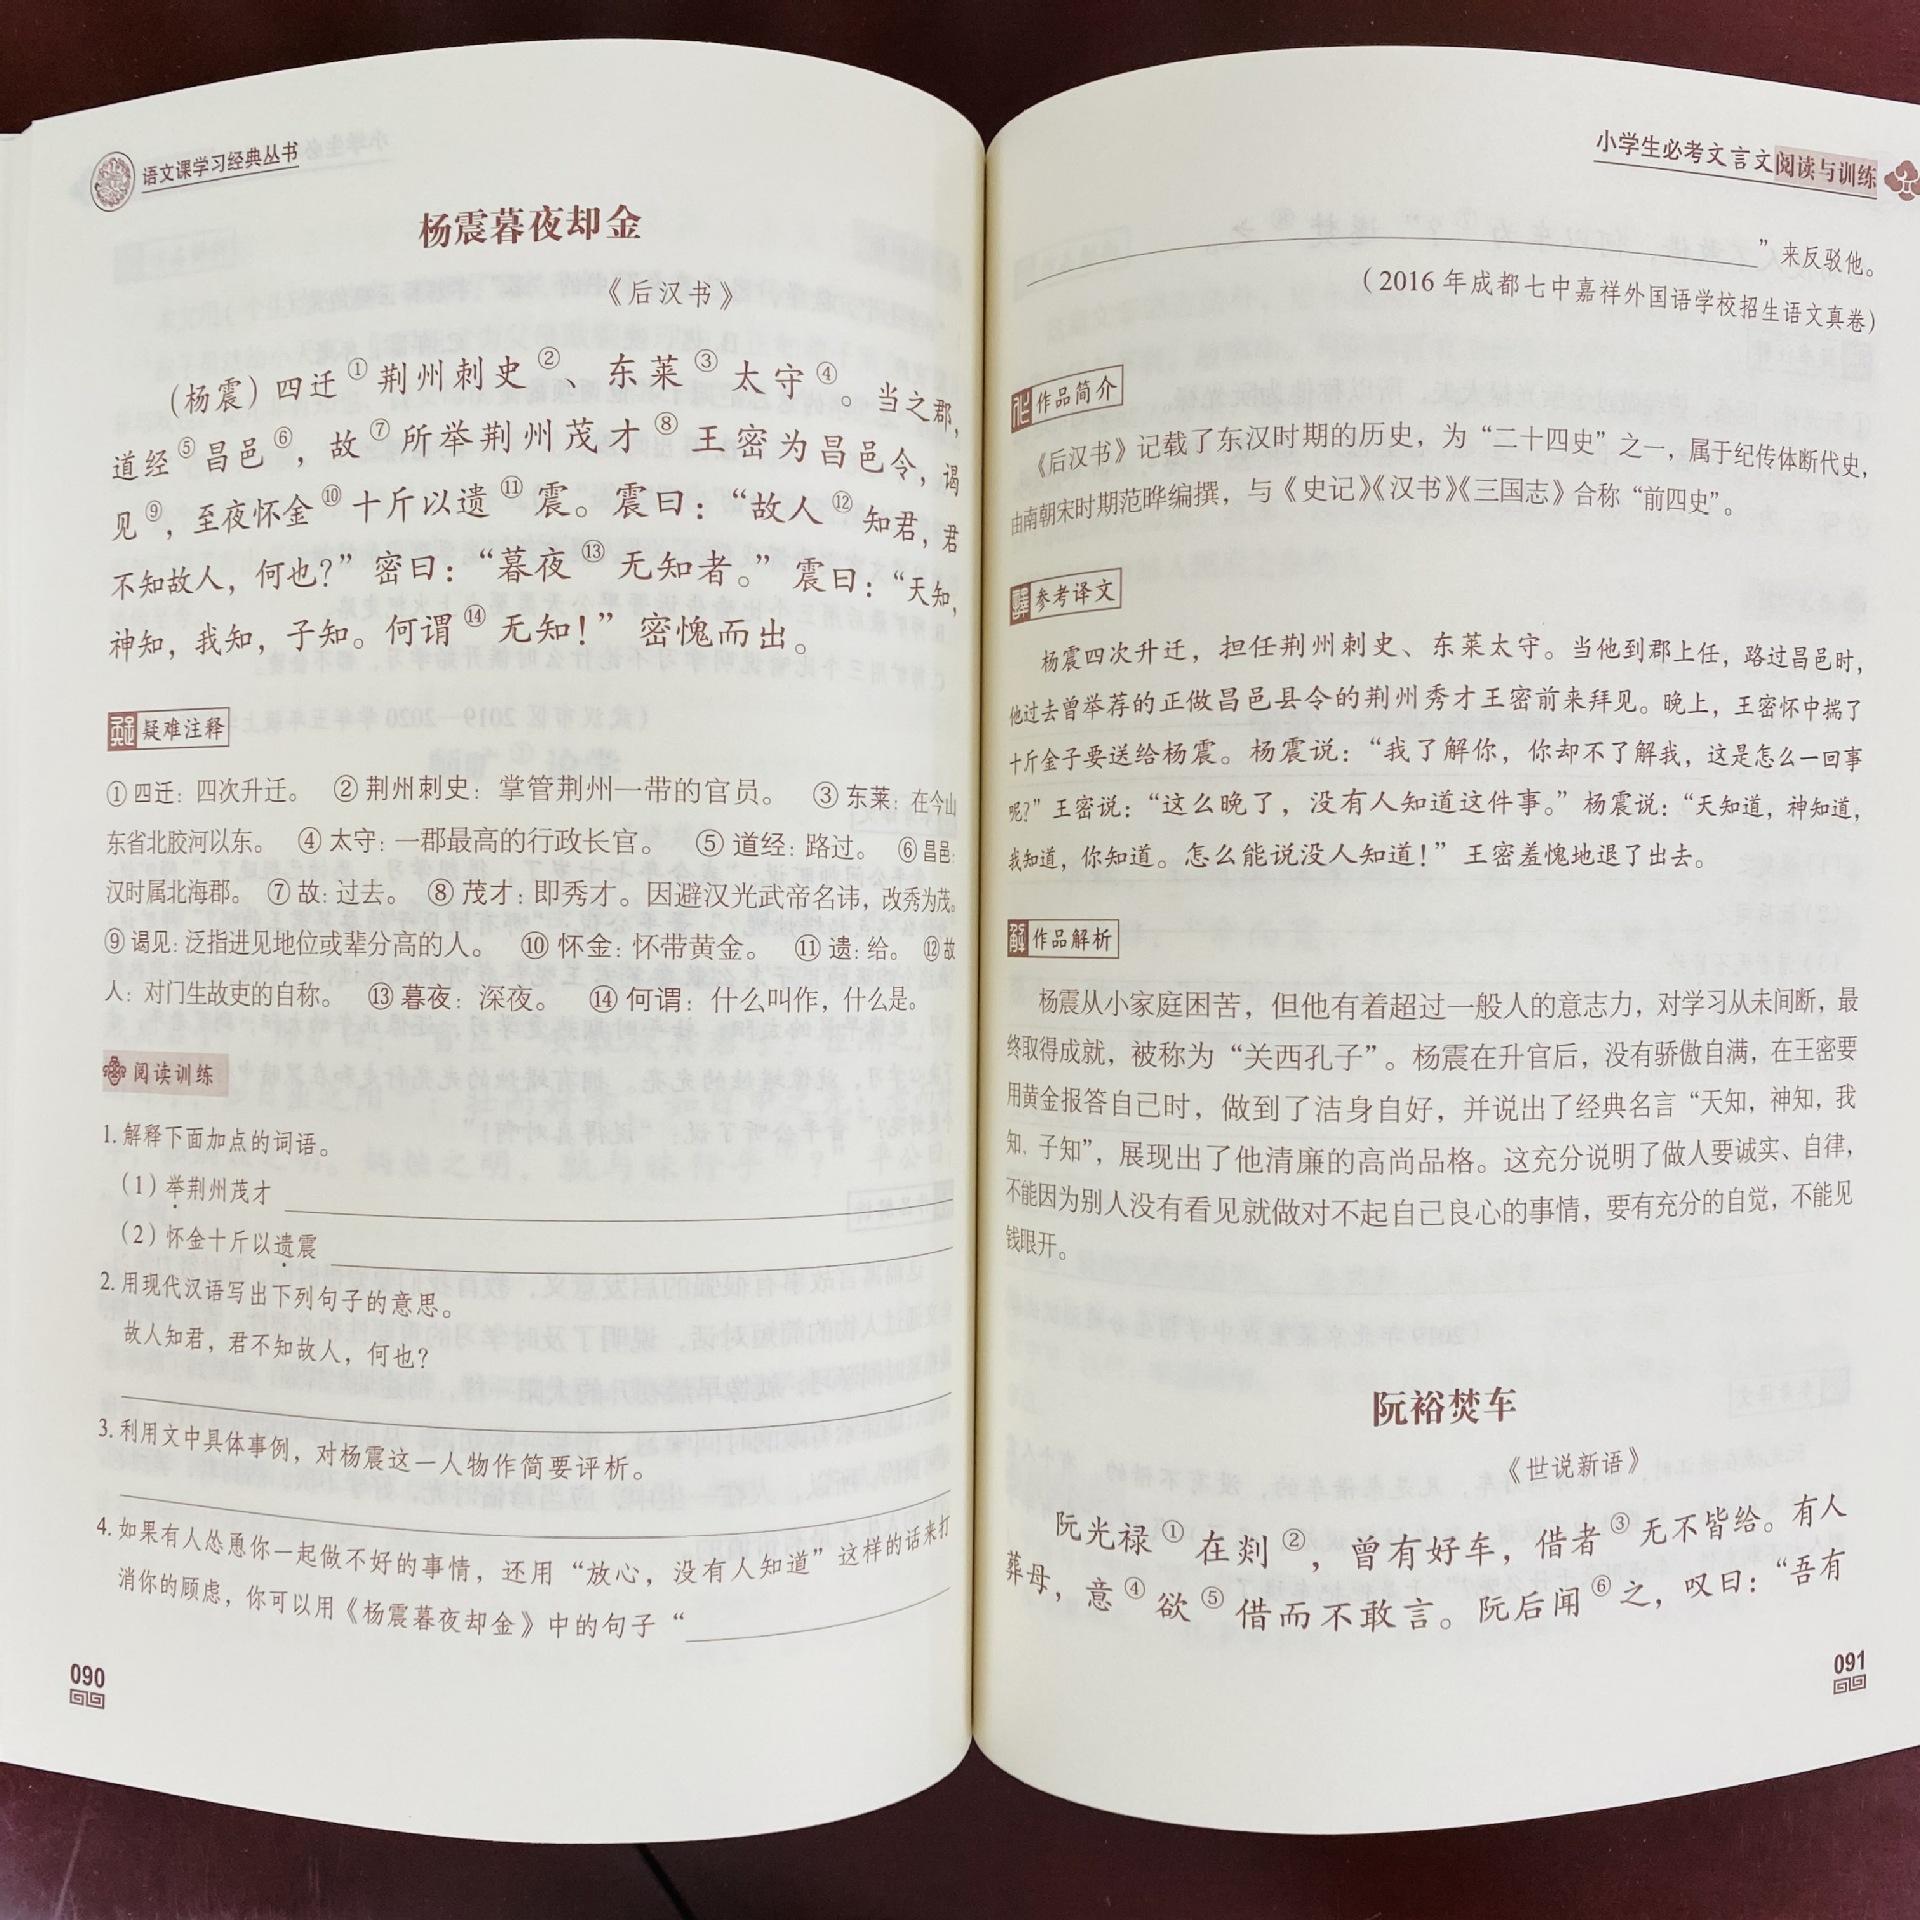 语文课学习经典丛书
杨震暮夜却金
《后汉书》
（杨震）四迁①荆州刺史②、东莱③太守④。当之郡，
道经⑤昌邑⑥，故⑦所举荆州茂才⑧王密为昌邑令，谒
见⑨，至夜怀金⑩十斤以遗⑪震。震曰：“故人⑫知君，君
不知故人，何也？”密曰：“暮夜⑬无知者。”震曰：“天知，
神知，我知，子知。何谓⑭无知！”密愧而出。
疑难注释
①四迁：四次升迁。 ②荆州刺史：掌管荆州一带的官员。 ③东莱：在今山
东省北胶河以东。 ④太守：一郡最高的行政长官。 ⑤道经：路过。 ⑥昌邑：
汉时属北海郡。 ⑦故：过去。 ⑧茂才：即秀才。因避汉光武帝名讳，改秀为茂。
⑨谒见：泛指进见地位或辈分高的人。 ⑩怀金：怀带黄金。 ⑪遗：给。 ⑫故
人：对门生故吏的自称。 ⑬暮夜：深夜。 ⑭何谓：什么叫作，什么是。
阅读训练
1.解释下面加点的词语。
（1）举荆州茂才
（2）怀金十斤以遗震
2.用现代汉语写出下列句子的意思。
故人知君，君不知故人，何也？
3.利用文中具体事例，对杨震这一人物作简要评析。
4.如果有人怂恿你一起做不好的事情，还用“放心，没有人知道”这样的话来打
消你的顾虑，你可以用《杨震暮夜却金》中的句子“
090
小学生必考文言文阅读与训练
”来反驳他。
（2016年成都七中嘉祥外国语学校招生语文真卷）
作品简介
《后汉书》记载了东汉时期的历史，为“二十四史”之一，属于纪传体断代史，
由南朝宋时期范晔编撰，与《史记》《汉书》《三国志》合称“前四史”。
参考译文
杨震四次升迁，担任荆州刺史、东莱太守。当他到郡上任，路过昌邑时，
他过去曾举荐的正做昌邑县令的荆州秀才王密前来拜见。晚上，王密怀中揣了
十斤金子要送给杨震。杨震说：“我了解你，你却不了解我，这是怎么一回事
呢？”王密说：“这么晚了，没有人知道这件事。”杨震说：“天知道，神知道，
我知道，你知道。怎么能说没人知道！”王密羞愧地退了出去。
作品解析
杨震从小家庭困苦，但他有着超过一般人的意志力，对学习从未间断，最
终取得成就，被称为“关西孔子”。杨震在升官后，没有骄傲自满，在王密要
用黄金报答自己时，做到了洁身自好，并说出了经典名言“天知，神知，我
知，子知”，展现出了他清廉的高尚品格。这充分说明了做人要诚实、自律，
不能因为别人没有看见就做对不起自己良心的事情，要有充分的自觉，不能见
钱眼开。
阮裕焚车
《世说新语》
阮光禄①在剡②，曾有好车，借者③无不皆给。有人
葬母，意④欲⑤借而不敢言。阮后闻⑥之，叹曰：“吾有
091